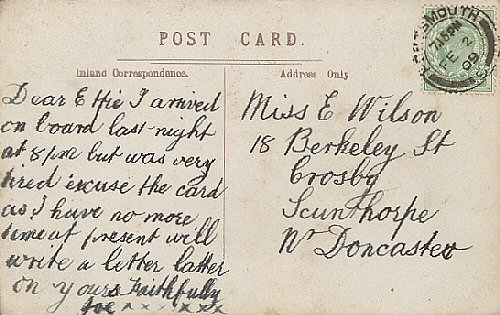 POST CARD.
Inland Correspondence.
Address Only
PORTSMOUTH
7.15PM
FE 2
09
Dear Effie I arrived
on board last night
at 8 pm but was very
tired excuse the card
as I have no more
time at present will
write a letter latter
on yours faithfully
Joe x x x x x x
Miss E Wilson
18 Berkeley St
Crosby
Scunthorpe
Nr Doncaster